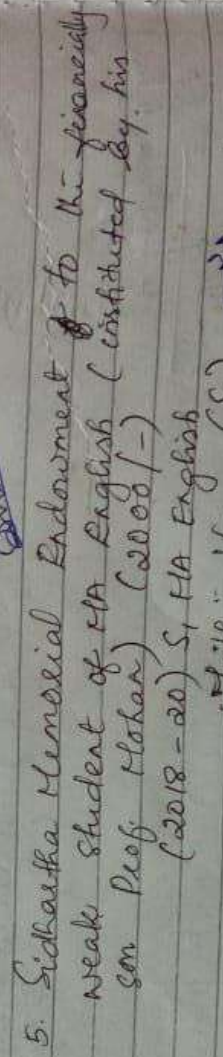 5. Sidhartha Memorial Endowment to the financially
weak student of MA English (instituted by his
son Prof. Mohan) (2000/-)
(2018-20) S, MA English